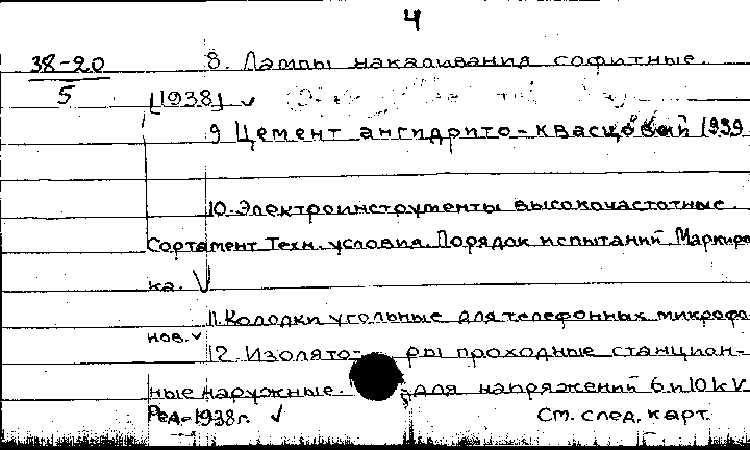 4
38-20
5
8. Лампы накаливания софитные.
[1938] v
9 Цемент ангидрито-квасцовый 1939
10. Электроинструменты высокочастотные.
Сортамент Техн. условия. Порядок испытаний. Маркиров
ка. V
11. Колодки угольные для телефонных микрофо
нов. v
12. Изолято- ры проходные станцион-
ные наружные. для напряжений 6 и 10 kV
Ред-1938г. v
См. след. карт.